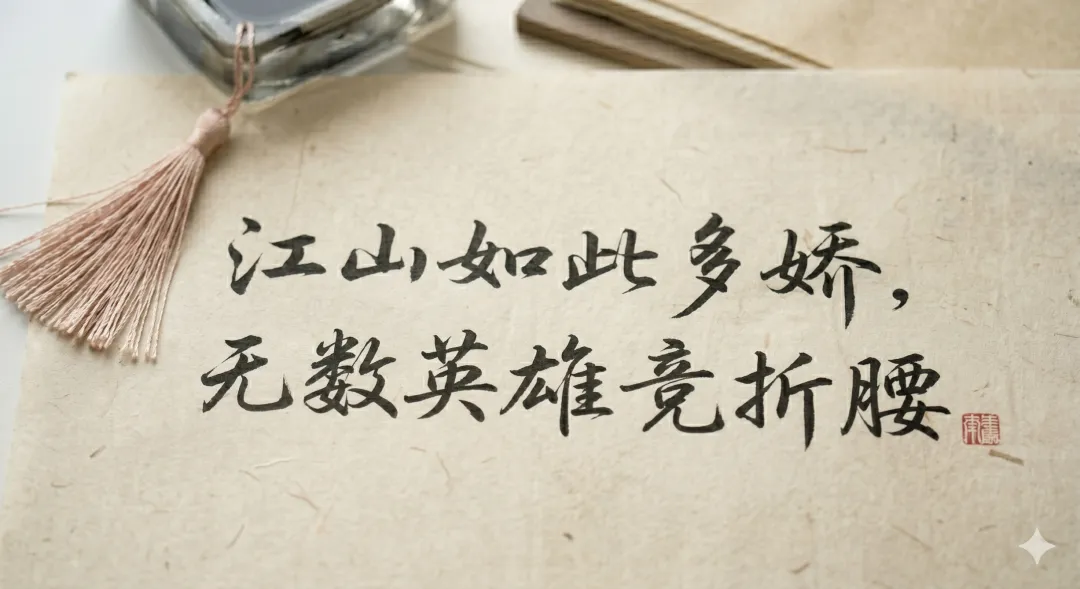 江山如此多娇，
无数英雄竞折腰